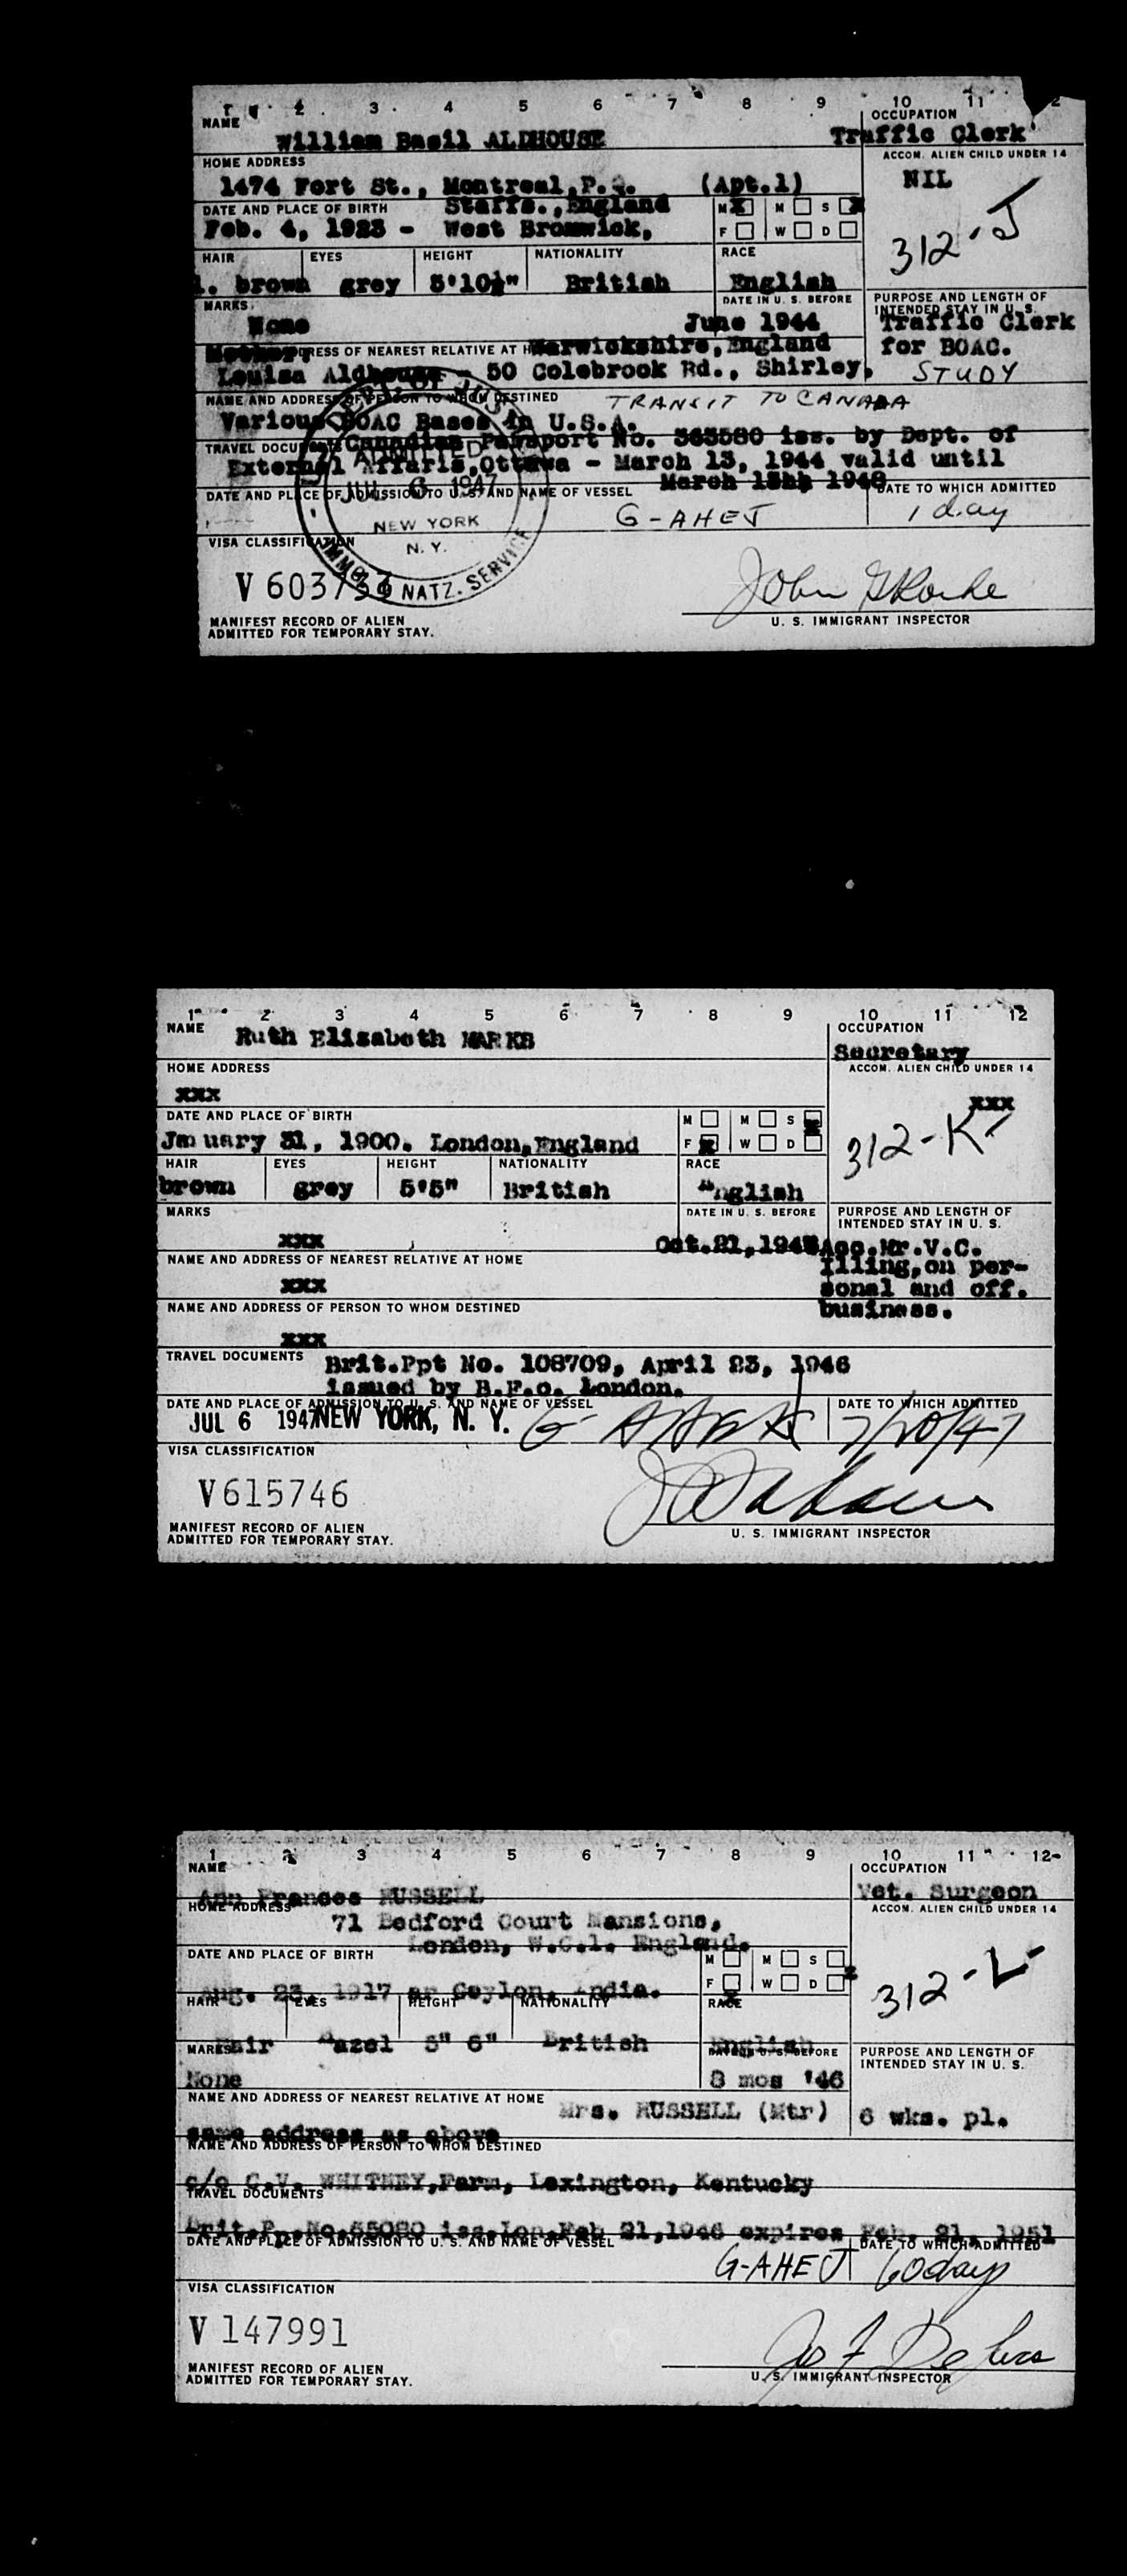 1 2 3 4 5 6 7 8 9 10 11 2
NAME OCCUPATION
William Basil ALDHOUSE Traffic Clerk
HOME ADDRESS ACCOM. ALIEN CHILD UNDER 14
1474 Fort St., Montreal,P.Q. (Apt.1) NIL
DATE AND PLACE OF BIRTH Staffs.,England M X M S X
Feb. 4, 1923 - West Bromwick, F W D
312-J
HAIR EYES HEIGHT NATIONALITY RACE
l. brown grey 5'10½" British English
MARKS DATE IN U. S. BEFORE PURPOSE AND LENGTH OF INTENDED STAY IN U. S.
None June 1944 Traffic Clerk
for BOAC.
STUDY
Mother, ADDRESS OF NEAREST RELATIVE AT H Warwickshire,England
Louisa Aldhouse - 50 Colebrook Rd., Shirley,
NAME AND ADDRESS OF PERSON TO WHOM DESTINED TRANSIT TO CANADA
Various BOAC Bases in U.S.A.
TRAVEL DOCUMENTS Canadian Passport No. 363580 iss. by Dept. of
External Affaris,Ottawa - March 13, 1944 valid until
March 13th 1948
DATE AND PLACE OF ADMISSION TO U. S. AND NAME OF VESSEL DATE TO WHICH ADMITTED
G-AHEJ 1 day
ADMITTED
JUL 6 1947
NEW YORK
N. Y.
IMMIG. & NATZ. SERVICE
VISA CLASSIFICATION
V 603733
MANIFEST RECORD OF ALIEN
ADMITTED FOR TEMPORARY STAY.
U. S. IMMIGRANT INSPECTOR
1 2 3 4 5 6 7 8 9 10 11 12
NAME Ruth Elizabeth MARKS OCCUPATION
Secretary
HOME ADDRESS ACCOM. ALIEN CHILD UNDER 14
xxx xxx
DATE AND PLACE OF BIRTH M M S X
January 31, 1900. London,England F X W D
312-K
HAIR EYES HEIGHT NATIONALITY RACE
brown grey 5'5" British English
MARKS DATE IN U. S. BEFORE PURPOSE AND LENGTH OF INTENDED STAY IN U. S.
xxx Oct.21,194 Acc.Mr.V.C.
Illing,on per-
sonal and off.
business.
NAME AND ADDRESS OF NEAREST RELATIVE AT HOME
xxx
NAME AND ADDRESS OF PERSON TO WHOM DESTINED
xxx
TRAVEL DOCUMENTS Brit.Ppt No. 108709, April 23, 1946
issued by B.F.o. London.
DATE AND PLACE OF ADMISSION TO U. S. AND NAME OF VESSEL DATE TO WHICH ADMITTED
JUL 6 1947 NEW YORK, N. Y. 7/20/47
VISA CLASSIFICATION
V615746
MANIFEST RECORD OF ALIEN
ADMITTED FOR TEMPORARY STAY.
U. S. IMMIGRANT INSPECTOR
1 2 3 4 5 6 7 8 9 10 11 12
NAME OCCUPATION
Ann Frances RUSSELL Vet. Surgeon
HOME ADDRESS ACCOM. ALIEN CHILD UNDER 14
71 Bedford Court Mansions,
London, W.C.1. England.
DATE AND PLACE OF BIRTH M M S X
Aug. 23, 1917 ar Ceylon, India. F X W D
312-L
HAIR EYES HEIGHT NATIONALITY RACE
Fair Hazel 5" 6" British English
MARKS DATE IN U. S. BEFORE PURPOSE AND LENGTH OF INTENDED STAY IN U. S.
None 8 mos '46
NAME AND ADDRESS OF NEAREST RELATIVE AT HOME Mrs. RUSSELL (Mtr) 6 wks. pl.
same address as above
NAME AND ADDRESS OF PERSON TO WHOM DESTINED
c/o C.V. WHITNEY,Farm, Lexington, Kentucky
TRAVEL DOCUMENTS
Brit.Pp.No.55080 iss.Lon.Feb 21,1946 expires Feb. 21, 1951
DATE AND PLACE OF ADMISSION TO U. S. AND NAME OF VESSEL DATE TO WHICH ADMITTED
G-AHEJ 60 days
VISA CLASSIFICATION
V 147991
MANIFEST RECORD OF ALIEN
ADMITTED FOR TEMPORARY STAY.
U. S. IMMIGRANT INSPECTOR